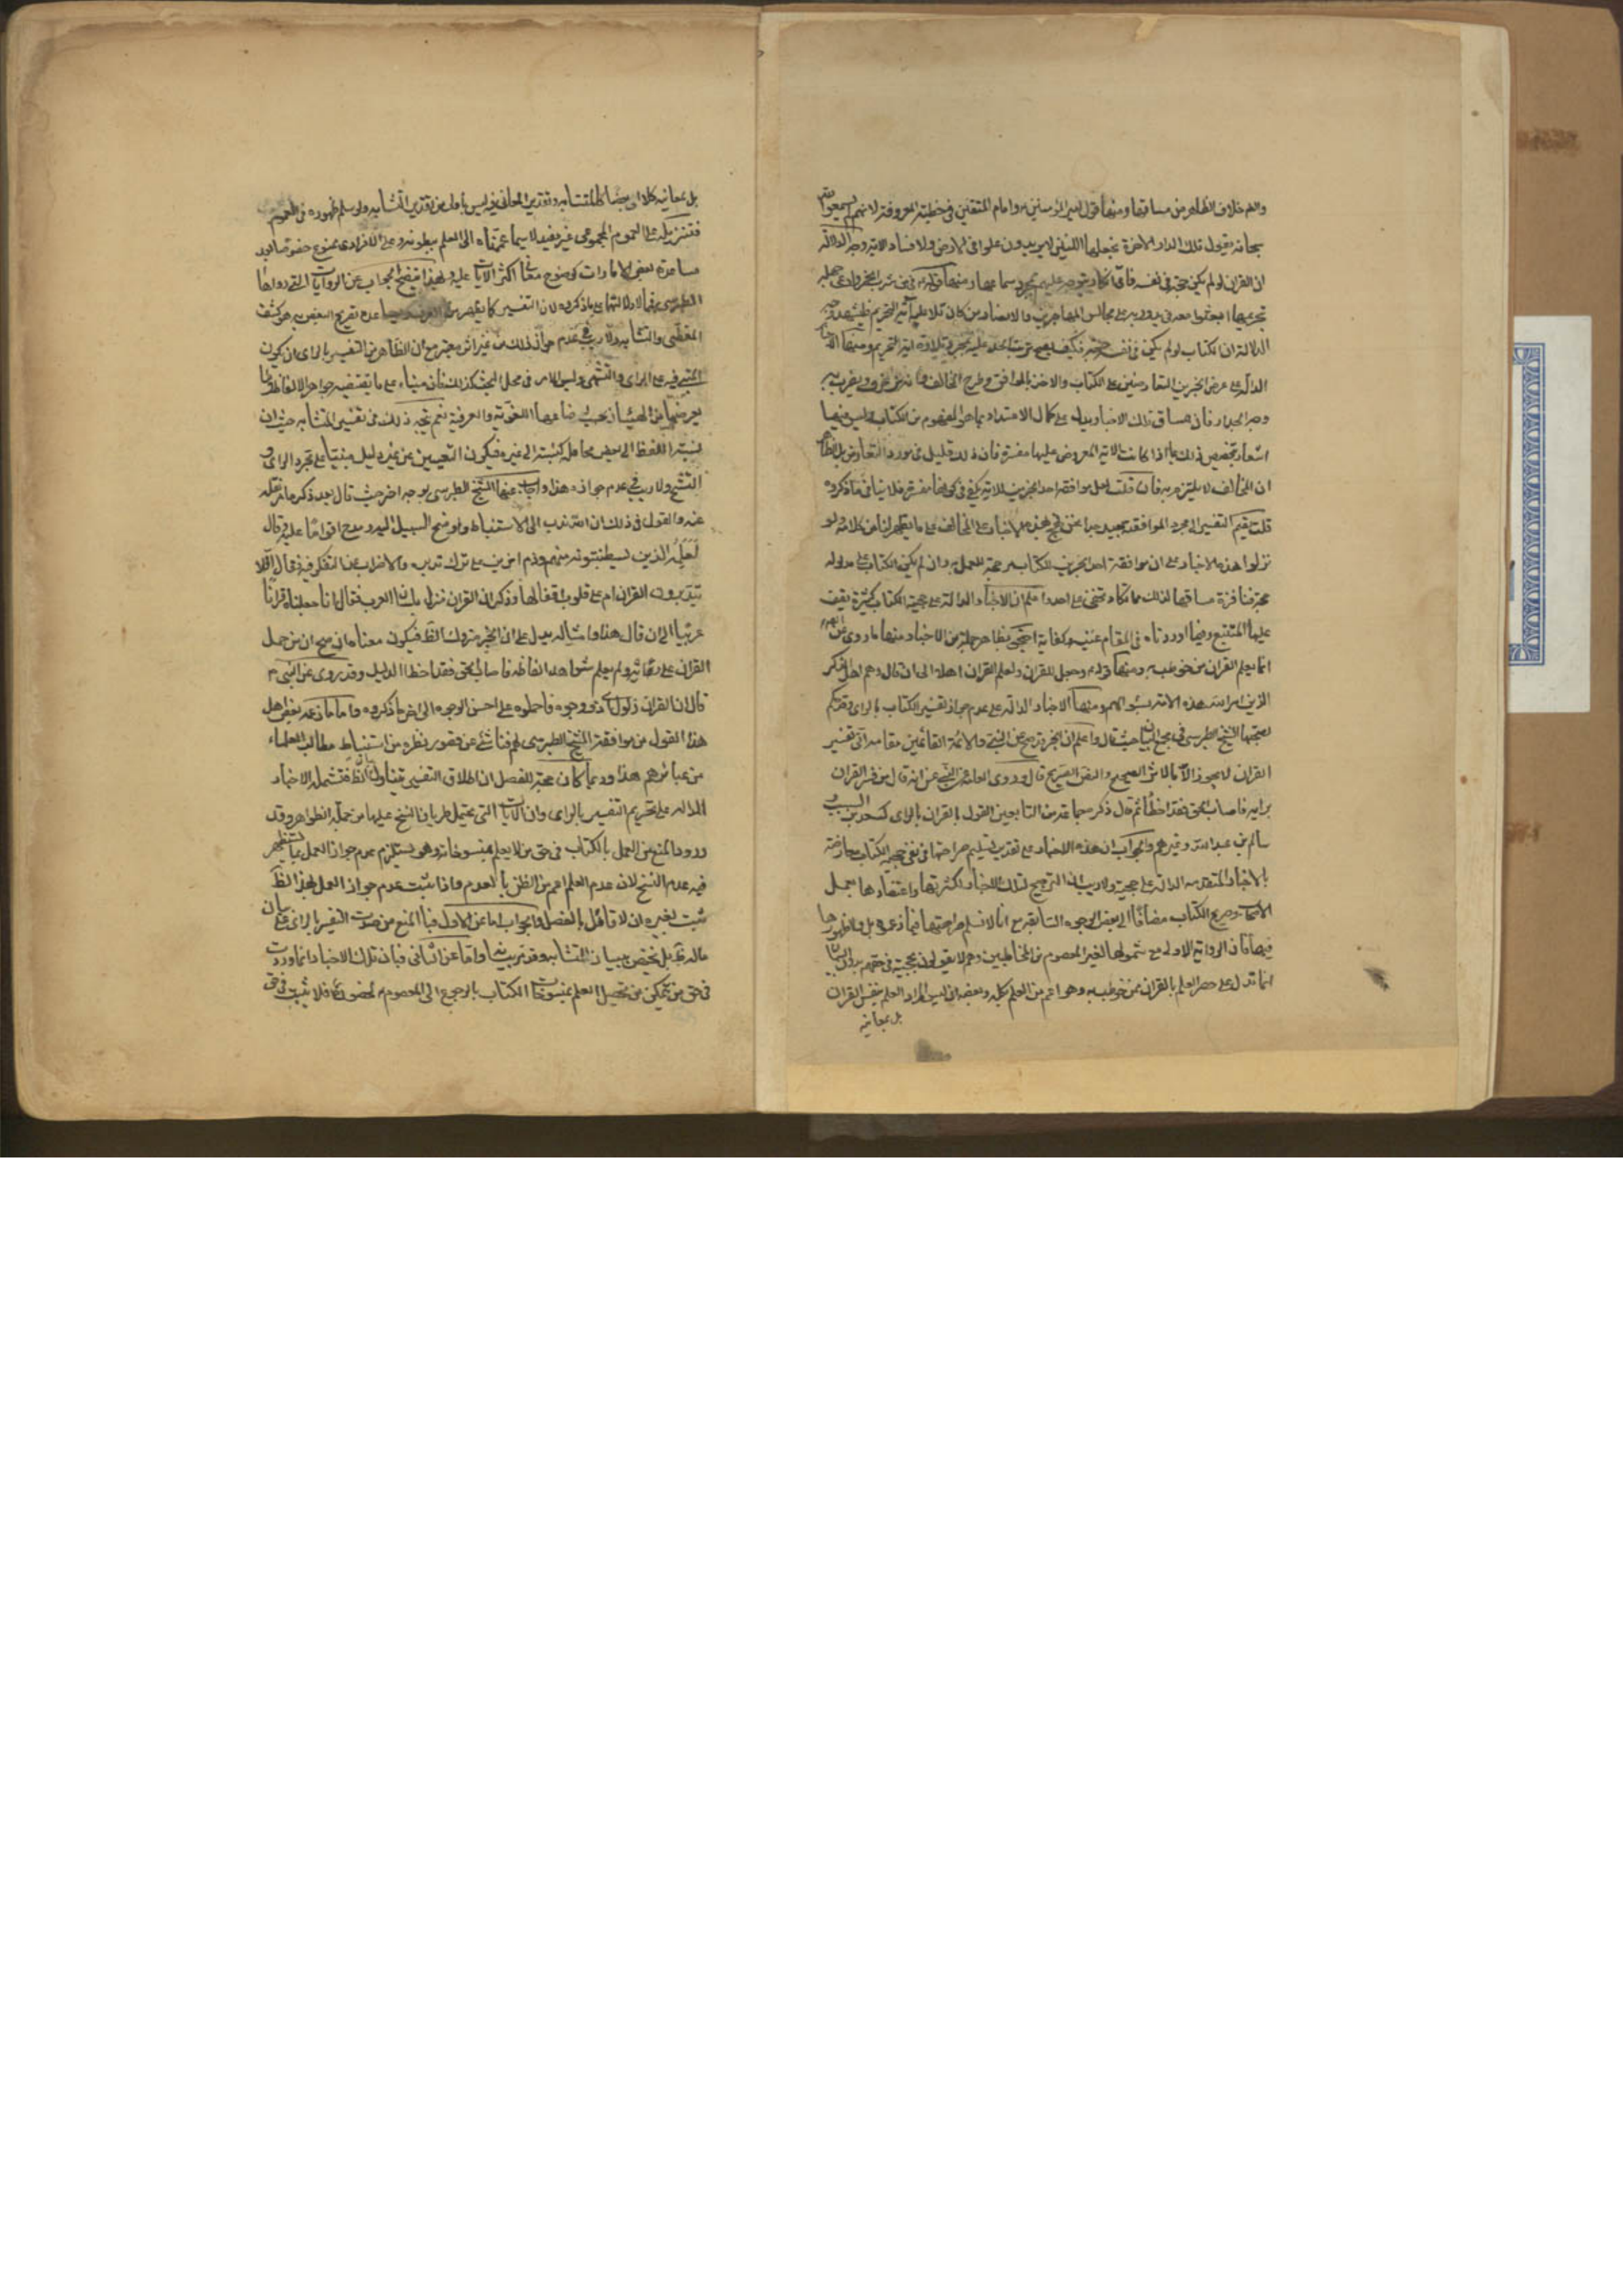 والله خلاف الظاهر من مساقها ومنها قول امير المؤمنين وامام المتقين في خطبته المعروفة كانهم لم يسمعوا الله
سبحانه يقول تلك الدار الاخرة نجعلها للذين لا يريدون علوا في الارض ولا فسادا الاية وجه الدلالة
ان القران لو لم يكن حجة في نفسه عليهم بمجرد سماعها ومنها قوله في من شرب الخمر وادعى جهله
تحريمها ابعثوا معه من يدور به على مجالس المهاجرين والانصار من كان تلا عليه اية التحريم فليشهد عليه وجه
الدلالة ان الكتاب لو لم يكن في نفسه حجة فكيف يصح ترتب الحد عليه بمجرد تلاوة اية التحريم ومنها
الدالة على عرض الخبرين المتعارضين على الكتاب والاخذ بالموافق وطرح المخالف
فان مساق تلك الاخبار يدل على كمال الاعتداد بما هو المفهوم من الكتاب وليس فيها
اشعار بتخصيص ذلك بما اذا كانت الاية المعروض عليها مفسرة فان ذلك قليل في مورد التعارض بل الظاهر
ان المخالف لا يلتزم به فان قلت لعل موافقة احد الخبرين للاية يكفي في كونها مفسرة فلا ينافي ما ذكروه
قلت تعميم التفسير الى مجرد الموافقة بعيد جدا نحن نحتج بهذه الاخبار على المخالف على ما يظهر لنا من كلامه ولو
نزلوا هذه الاخبار على ان موافقة احد الخبرين للكتاب مرجحة للعمل به وان لم يكن الكتاب على مدلوله
حجة فنافرة مساقها لذلك مما لا يكاد يخفى على احد واعلم ان الاخبار الدالة على حجية الكتاب كثيرة يقف
عليها المتتبع وفيما اوردناه في المقام كفاية احتج بظاهر جملة من الاخبار منها ما روي
انما يعلم القران من خوطب به ومنها قوله وجعل للقران ولعلم القران اهلا الى ان قال وهم اهل الذكر
الذين امر الله هذه الامة بسؤالهم ومنها الاخبار الدالة على عدم جواز تفسير الكتاب بالراي وقد حكم
بصحتها الشيخ الطبرسي في مجمع البيان حيث قال واعلم ان الخبر قد صح عن النبي والائمة القائمين مقامه ان تفسير
القران لا يجوز الا بالاثر الصحيح والنص الصريح قال وروى العامة عن النبي انه قال من فسر القران
برايه فاصاب الحق فقد اخطا ثم قال ذكر جماعة من التابعين القول بالقران بالراي كسعيد بن المسيب و
سالم بن عبد الله وغيرهم والجواب ان هذه الاخبار على تقدير تسليم صراحتها في نفي حجية الكتاب معارضة
بالاخبار المتقدمة الدالة على حجيته ولا ريب ان الترجيح لتلك الاخبار لكثرتها واعتضادها بعمل
الاصحاب وصريح الكتاب مضافا الى بعض الوجوه السابقة مع انا لا نسلم صراحتها فيما زعموه بل ولا ظهورها
فيها فان الرواية الاولى مع شمولها لغير المعصوم من المخاطبين وهم لا يقولون بحجيته في حقهم
انما تدل على حصر العلم بالقران بمن خوطب به وهو اعم من العلم بكله وبعضه اذ ليس المراد العلم بنفس القران
بل بمعانيه
بل بمعانيه كلا او بعضا كالمتشابه وتقدير المعاني فيه ليس باولى من تقدير المتشابه ولو سلم ظهوره في العموم
فتنزيله على العموم المجموعي غير بعيد لا سيما
مساعدة بعض الامارات كوضوح معاني اكثر الايات عليه وبهذا يتضح الجواب عن الروايات التي رواها
الطبرسي مع ما ذكروه لان التفسير كما يظهر من العرف عدة تصريح البعض به هو كشف
المغطى والمتشابه ولا ريب في عدم جواز ذلك من غير اثر معتبر مع ان الظاهر من التفسير بالراي ان يكون
المتبع فيه على الراي والتشهي وليس الامر في محل البحث كذلك على ما يقتضيه جواهر الالفاظ وما
يعرضها من الهيئات بحسب اوضاعها اللغوية والعرفية نعم يتجه ذلك في تفسير المتشابه حيث ان
نسبة اللفظ الى بعض محامله كنسبته الى غيره فيكون التعيين من غير دليل مبنيا على مجرد الراي و
التشهي ولا ريب في عدم جوازه هذا واجاب عنها الشيخ الطبرسي بوجه اخر حيث قال بعد ذكر ما مر نقله
عنه والقول في ذلك ان الله ندب الى الاستنباط واوضح السبيل اليه ومدح اقواما عليه وقال
لعلمه الذين يستنبطونه منهم وذم اخرين على ترك تدبره والاضراب عن التفكر فيه فقال افلا
يتدبرون القران ام على قلوب اقفالها وذكر ان القران نزل بلسان العرب فقال انا جعلناه قرانا
عربيا الى ان قال هذا وامثاله يدل على ان الخبر متروك الظاهر فيكون معناه ان صح ان من حمل
القران على رايه ولم يعلم شواهد الفاظه فاصاب الحق فقد اخطا الدليل وقد روي عن النبي
قال ان القران ذلول ذو وجوه فاحملوه على احسن الوجوه الى اخر ما ذكروه واما ما زعمه بعض اهل
هذا القول من موافقة الشيخ الطبرسي لهم فناشئ عن قصور نظره من استنباط مطالب العلماء
من عباراتهم هذا وربما كان حجة المفصل ان اطلاق التفسير يتناول الظاهر فتشمله الاخبار
الدالة على تحريم التفسير بالراي وان الايات التي يحتمل طريان النسخ عليها من جملة الظواهر وقد
ورد المنع من العمل بالكتاب في حق من لا يعلم بمنسوخاته وهو يستلزم عدم جواز العمل بما يستظهر
فيه عدم النسخ لان عدم العلم اعم من الظن بالعدم واذا ثبت عدم جواز العمل بهذا الظاهر
ثبت بغيره اذ لا قائل بالفصل والجواب اما عن الاول فبالمنع من صدق التفسير بالراي على بيان
ماله ظاهر بل يختص ببيان المتشابه وقد مر بيانه واما عن الثاني فبان تلك الاخبار انما وردت
في حق من يتمكن من تحصيل العلم بمنسوخات الكتاب بالرجوع الى المعصوم فلا يثبت في حق